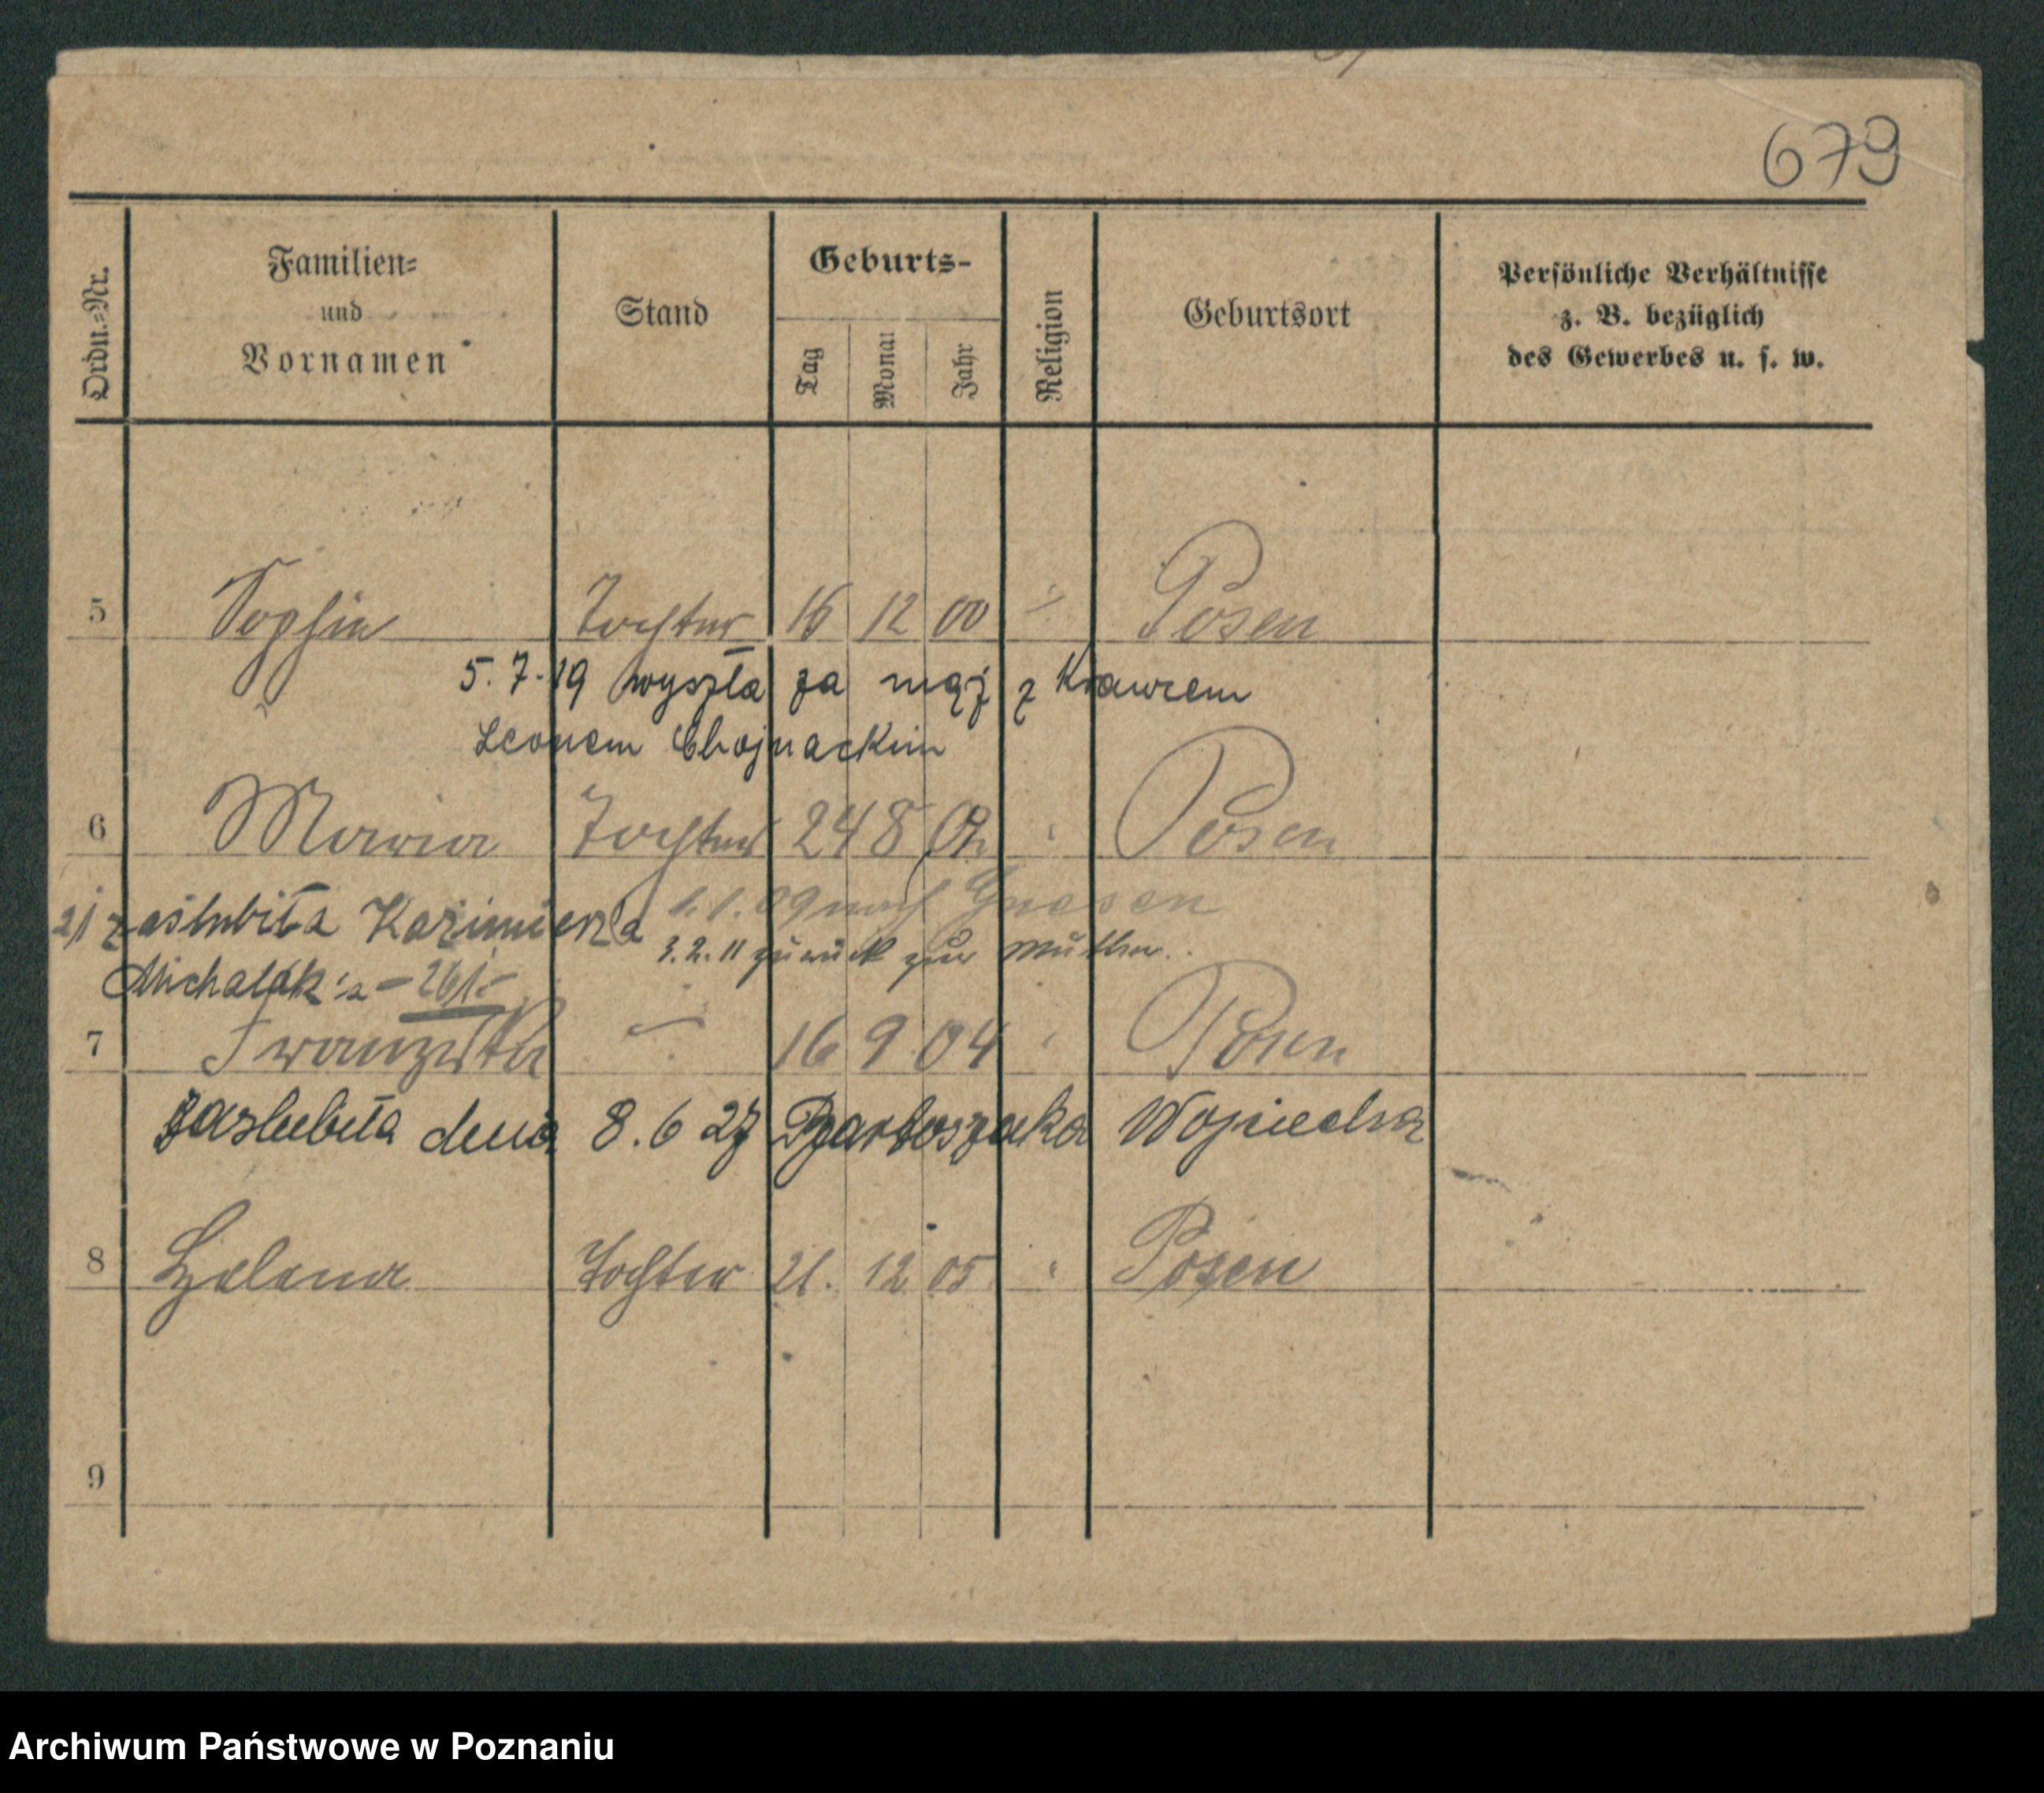 679
Ordn.-Nr.
Familien-
und
Vornamen
Stand
Geburts-
Tag
Monat
Jahr
Religion
Geburtsort
Persönliche Verhältnisse
z. B. bezüglich
des Gewerbes u. s. w.
5 Sophie Tochter 16 12 00 Posen
5. 7. 19 wyszła za mąż z Krawcem
Leonem Chojnackim
6 Maria Tochter 24 8 02 Posen
1. 1. 09 nach Gnesen
2/ zaślubiła Kazimierza
3. 2. 11 zurück zur Mutter.
Michalak'a
7 Franziska 16 9 04 Posen
zaślubiła dnia 8. 6 27 Bartoszaka Wojciecha
8 Helena Tochter 21. 12 05 Posen
9
Archiwum Państwowe w Poznaniu